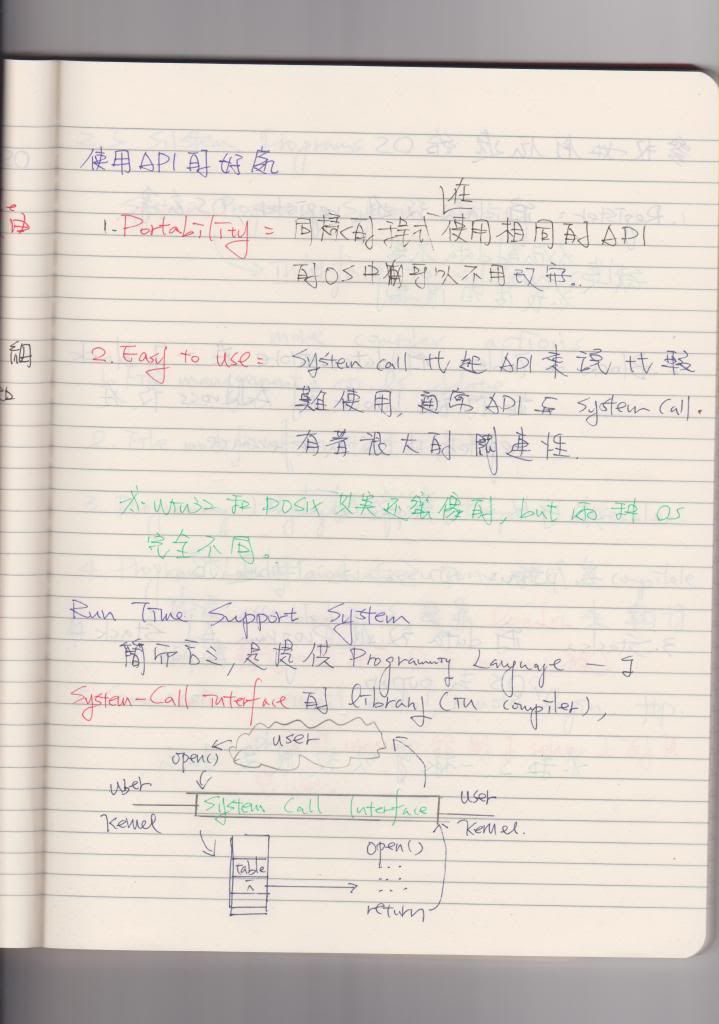 使用API的好處
在
1. Portability = 同樣的程式使用相同的API
的OS中都可以不用改寫.
2. Easy to use = System call 比起API來說比較
難使用, 通常API与 System Call.
有著很大的關連性.
※ Win32 和 POSIX 其实还蛮像的, but 兩种 OS
完全不同。
Run Time Support System
簡而言之, 是提供 Programming Language 一个
System-Call interface 的 library (in compiler),
user
open()
user
System Call Interface
user
kernel
kernel.
open()
table
...
i
...
return